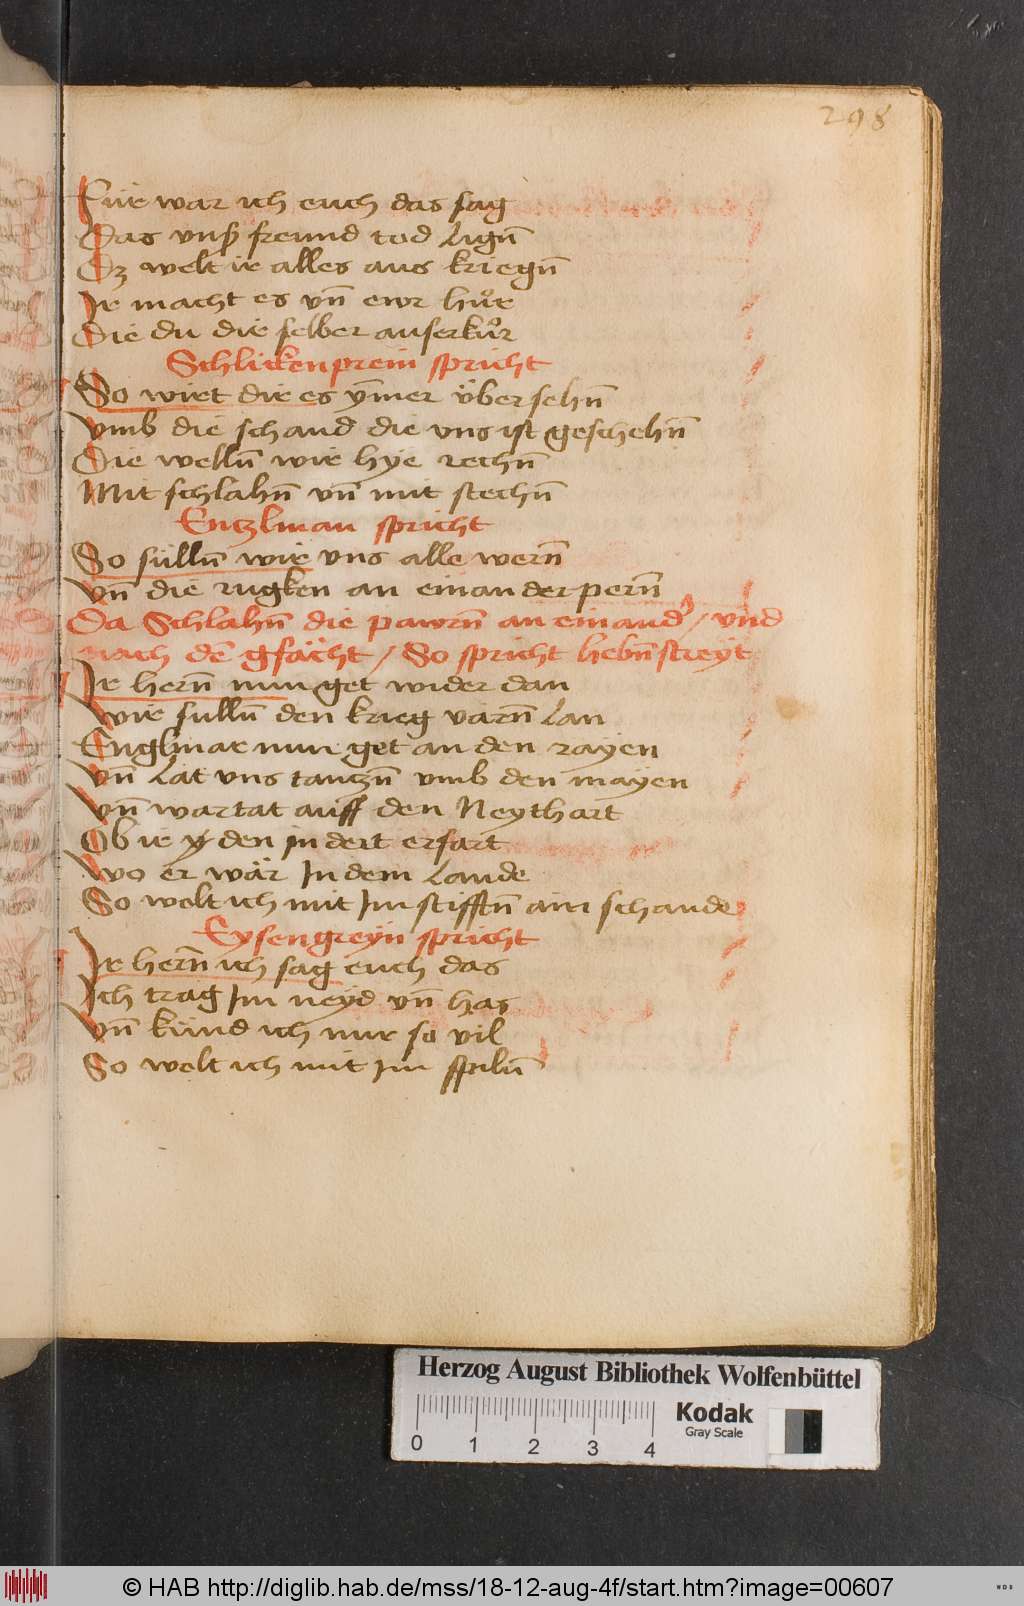 298
Für war ich euch das sag
Das vnß freund tod ligñ
Dz welt ir alles aus kriegñ
Ir macht es vñ ewr hůr
Die du dir selber auserkůr
Schlickenprein spricht
So wirt dir es ym̄er übersehñ
Vmb die schand die vns ist geschehñ
Die wellñ wir hye rechñ
Mit schlahñ vñ mit stechñ
Entzlman spricht
So süllñ wir vns alle wernn̄
Vñ die rugken an einander pernn̄
Da Schlahñ die pawrñ an einand' / vnd
nach dē gfächt / So spricht hebnstreyt
Ir herñ nun get wider dan
Wir sullñ den krieg varñ lan
Englmar nun get an den rayen
Vñ lat vns tantzñ vmb den mayen
Vñ wartat auff den Neythart
Ob ir yden indert erfart
Wo er wär In dem lande
So wolt ich mit Im stifftñ ain schande
Eysengreyn spricht
Ir herñ ich sag euch das
Ich trag Im neyd vñ has
Vñ künd ich nur so vil
So wolt ich mit Im spilñ
Herzog August Bibliothek Wolfenbüttel
Kodak
Gray Scale
0 1 2 3 4
© HAB http://diglib.hab.de/mss/18-12-aug-4f/start.htm?image=00607